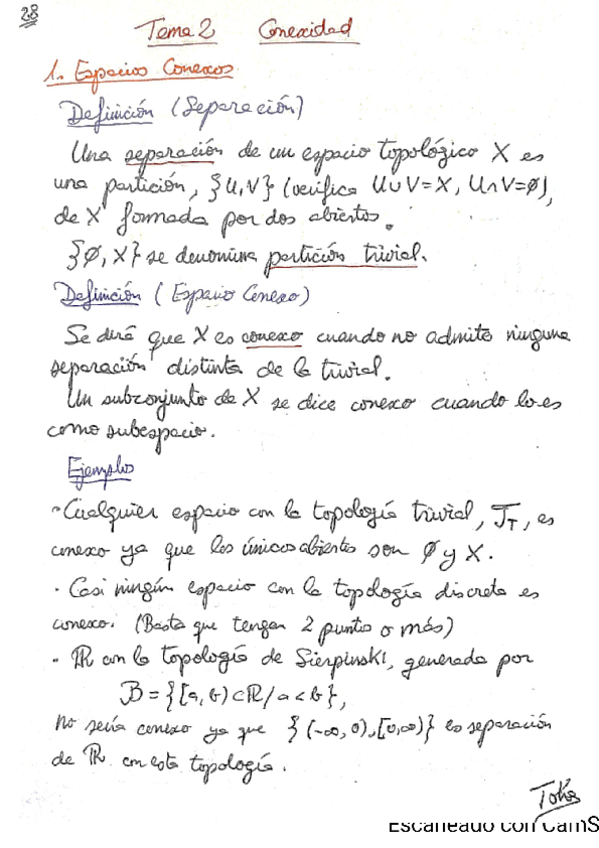 28
Tema 2 Conexidad
1. Espacios Conexos
Definición (Separación)
Una separación de un espacio topológico X es
una partición, {U,V} (verifica U∪V=X, U∩V=∅),
de X formada por dos abiertos.
{∅,X} se denomina partición trivial.
Definición (Espacio Conexo)
Se dirá que X es conexo cuando no admite ninguna
separación distinta de la trivial.
Un subconjunto de X se dice conexo cuando lo es
como subespacio.
Ejemplos
· Cualquier espacio con la topología trivial, J_T, es
conexo ya que los únicos abiertos son ∅ y X.
· Casi ningún espacio con la topología discreta es
conexo. (Basta que tengan 2 puntos o más)
· ℝ con la topología de Sierpinski, generada por
B = {[a,b)⊂ℝ/a<b},
no sería conexo ya que {(-∞,0),[0,∞)} es separación
de ℝ con esta topología.
Escaneado con CamS